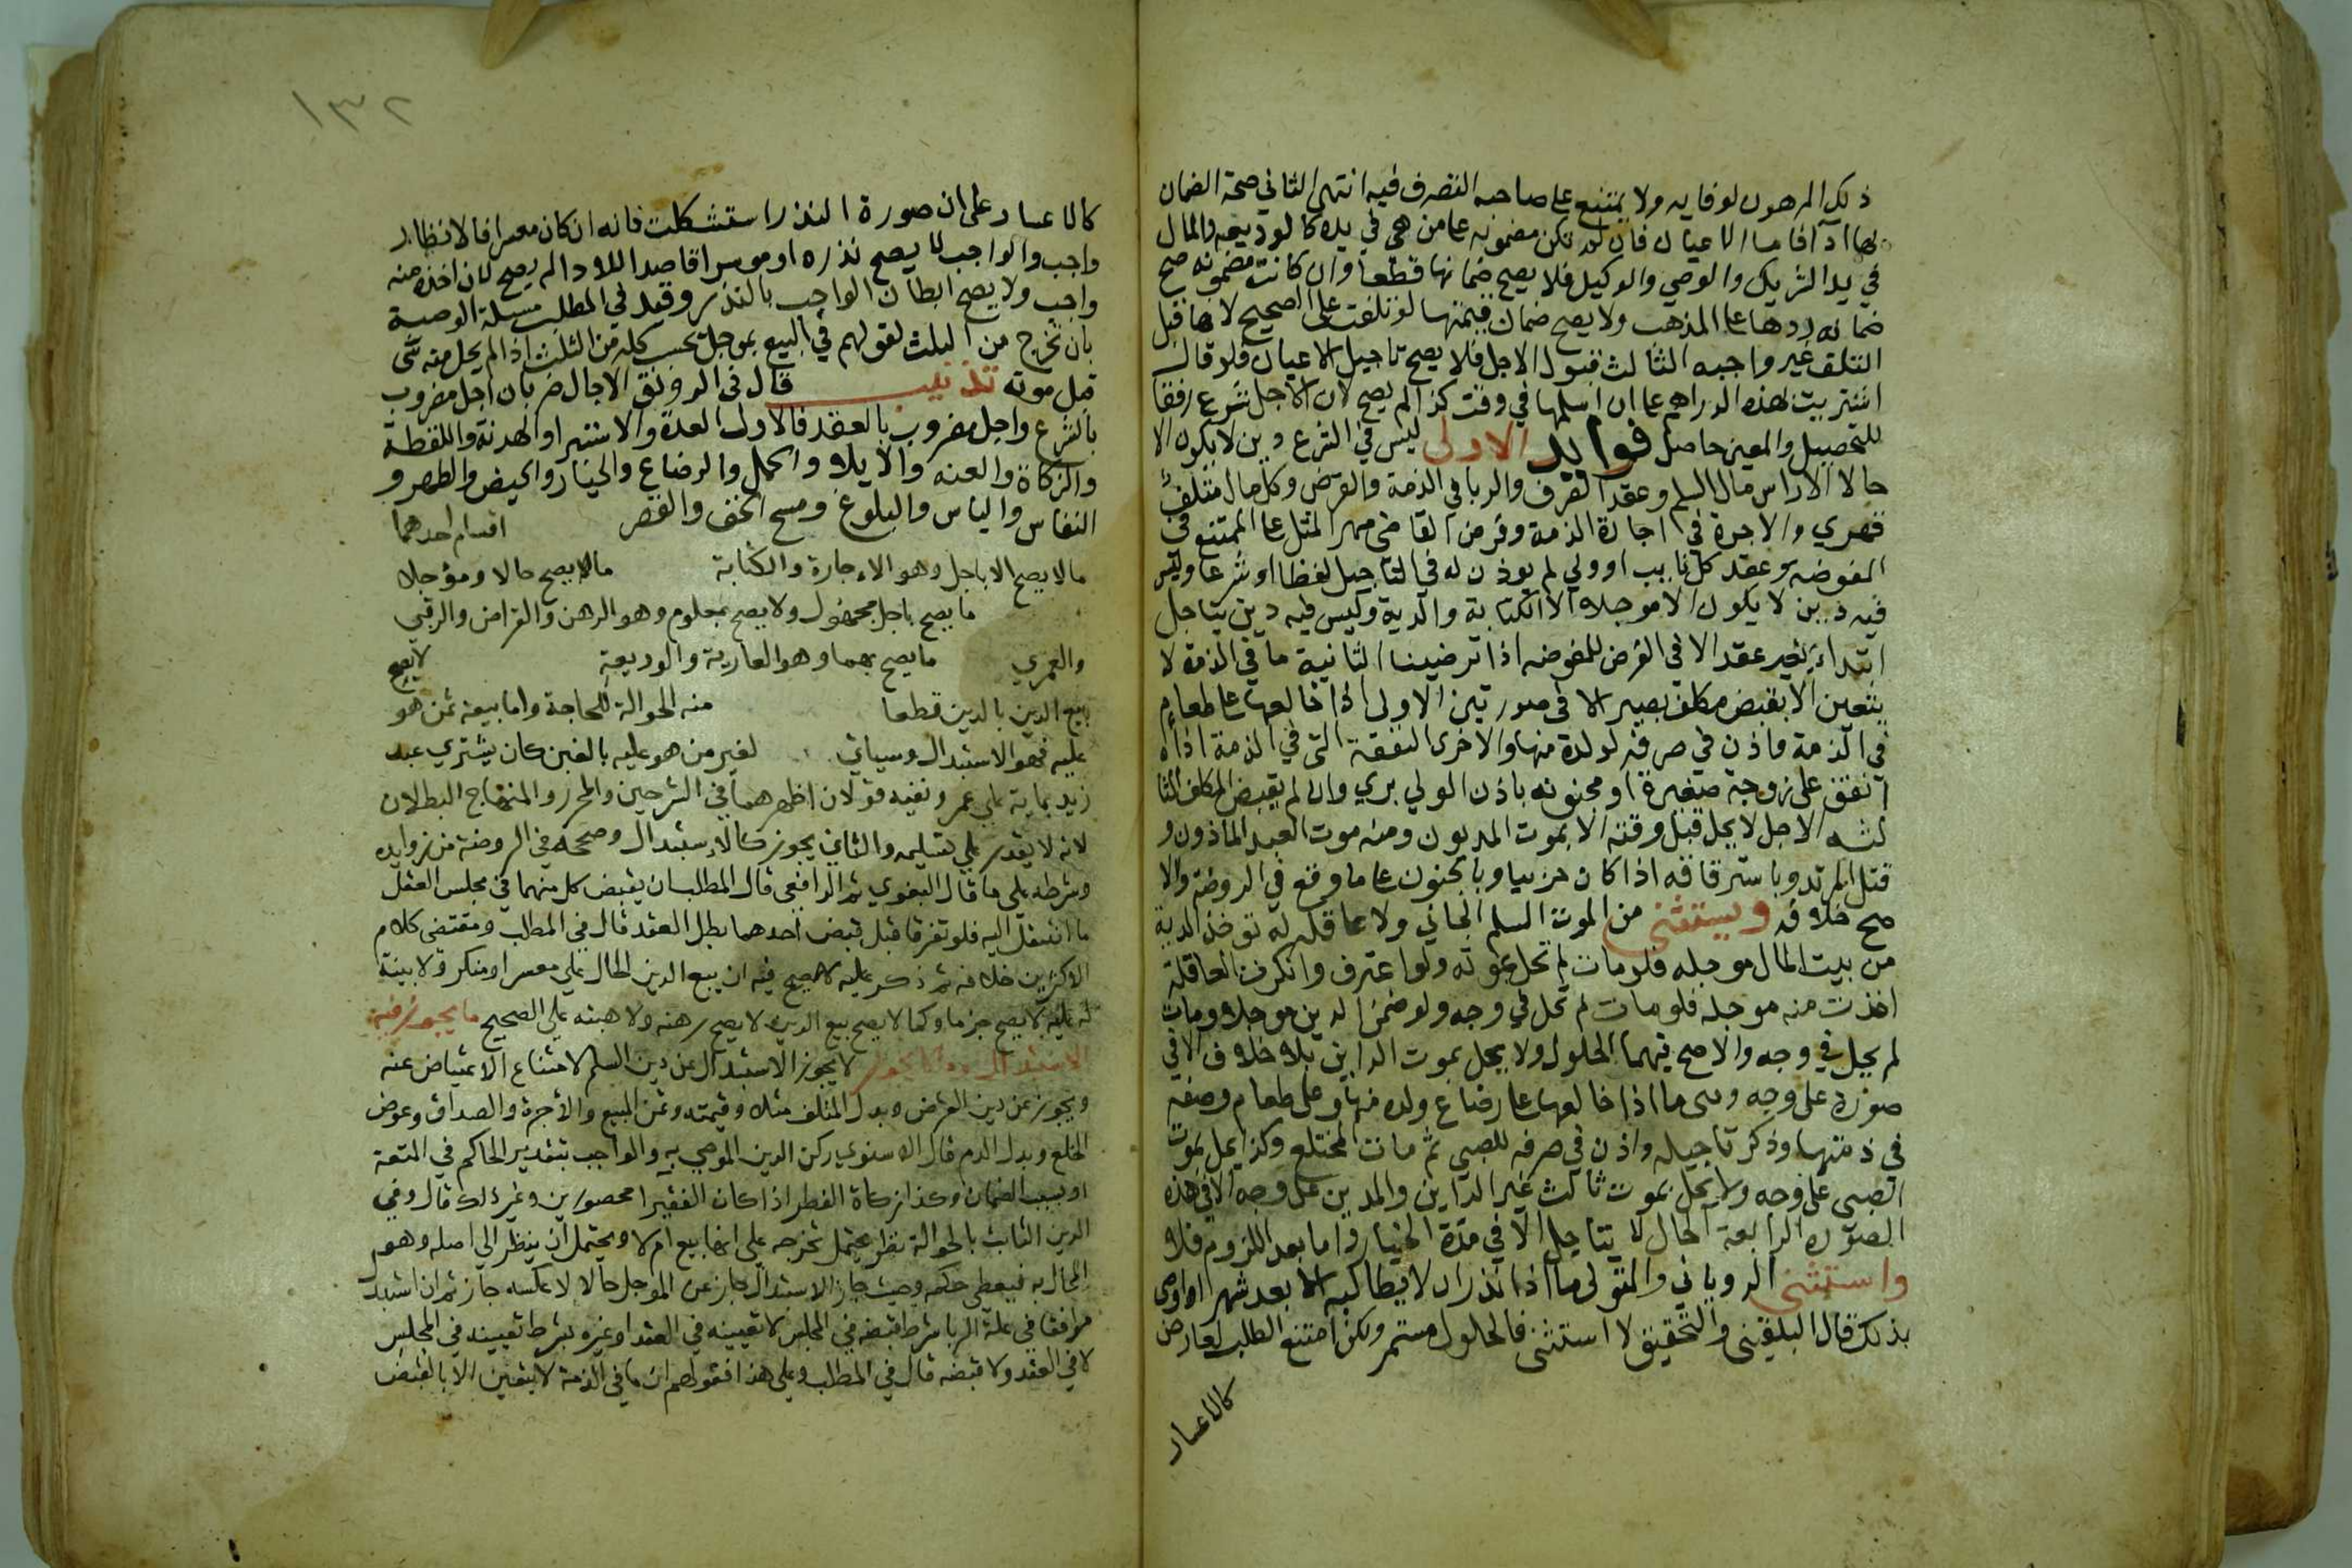 ذلك المرهون لوفايه ولا يمتنع على صاحبه التصرف فيه انتهى الثاني صحة الضمان
بها اداً فاما الاعيان فان لم تكن مضمونه على من هي في يده كالوديعه والمال
في يد الشريك والوصي والوكيل فلا يصح ضمانها قطعا وان كانت مضمونه صح
ضمانه ردها على المذهب ولا يصح ضمان قيمتها لو تلفت على الصحيح لانها قبل
التلف غير واجبه الثالث قبول الاجل فلا يصح تاجيل الاعيان فلو قال
اشتريت بهذه الدراهم على ان اسلمها في وقت كذا لم يصح لان الاجل شرع رفقا
للتحصيل والمعين حاصل فوايد الاولى ليس في الشرع دين لا يكون الا
حالا الا راس مال السلم وعقد الصرف والربا في الذمة والقرض وكل مال متلف
قهري والاجرة في اجارة الذمة وفرض القاضي مهر المثل على الممتنع في
المفوضه وعقد كل نايب او ولي لم يوذن له في التاجيل لفظا او شرعا وليس
فيه دين لا يكون الا موجلا الا الكتابة والدية وليس فيه دين يتاجل
ابتداء بغير عقد الا في الفرض للمفوضه اذا ترضينا الثانية ما في الذمة لا
يتعين الا بقبض مكلف بصير الا في صورتين الاولى اذا خالعها على طعام
في الذمة واذن في صرفه لولده منها والاخرى النفقة التي في الذمة اذا
انفق على زوجة صغيرة او مجنونه باذن الولي بري وان لم يقبض المكلف الثا
لثه الاجل لا يحل قبل وقته الا بموت المديون ومنه موت العبد الماذون و
قتل المرتد وباسترقاقه اذا كان حربيا وبالجنون على ما وقع في الروضة والا
صح خلافه ويستثنى من الموت المسلم الجاني ولا عاقلة له توخذ الدية
من بيت المال موجله فلو مات لم تحل بموته ولو اعترف وانكرت العاقلة
اخذت منه موجله فلو مات لم تحل في وجه ولو ضمن الدين موجلا ومات
لم يحل في وجه والاصح فيهما الحلول ولا يحل بموت الداين بلا خلاف الا في
صورة على وجه وهي ما اذا خالعها على رضاع ولده منها وعلى طعام وصفه
في ذمتها وذكر تاجيله واذن في صرفه للصبي ثم مات المختلع وكذا يحل بموت
الصبي على وجه ولا يحل بموت ثالث غير الداين والمدين على وجه الا في هذه
الصورة الرابعة الحال لا يتاجل الا في مدة الخيار واما بعد اللزوم فلا
واستثنى الروياني والمتولي ما اذا نذر ان لا يطالبه الا بعد شهر او اوصى
بذلك قال البلقيني والتحقيق لا استثنى فالحلول مستمر ولكن امتنع الطلب لعارض
كالاعسار
١٣٢
كالاعسار على ان صورة النذر استشكلت فانه ان كان معسرا فالانظار
واجب والواجب لا يصح نذره او موسرا قاصدا للادا لم يصح لان اخذه منه
واجب ولا يصح ابطال الواجب بالنذر وقيد في المطلب مسلة الوصية
بان تخرج من الثلث لقولهم في البيع بموجل يحسب كله من الثلث اذا لم يحل منه شي
قبل موته تذنيب قال في الرونق الاجال ضربان اجل مضروب
بالشرع واجل مضروب بالعقد فالاول العدة والاستبرا والهدنة واللقطة
والزكاة والعنه والايلاء والحمل والرضاع والخيار والحيض والطهر و
النفاس والياس والبلوغ ومسح الخف والقصر اقسام احدهما
ما لا يصح الا باجل وهو الاجارة والكتابة ما يصح حالا ومؤجلا
ما يصح باجل مجهول ولا يصح بمعلوم وهو الرهن والقراض والرقبى
والعمري ما يصح بهما وهو العارية والوديعة لا يصح
بيع الدين بالدين قطعا منه الحوالة للحاجة واما بيعه ممن هو
عليه فهو الاستبدال وسياتي لغير من هو عليه بالعين كان يشتري عبد
زيد بماية على عمرو ففيه قولان اظهرهما في الشرحين والمحرر والمنهاج البطلان
لانه لا يقدر على تسليمه والثاني يجوز كالاستبدال وصححه في الروضة من زوايده
وشرطه على ما قال البغوي ثم الرافعي قال المطلب ان يقبض كل منهما في مجلس العقد
ما انتقل اليه فلو تفرقا قبل قبض احدهما بطل العقد قال في المطلب ومقتضى كلام
الاكثرين خلافه ثم ذكر عليه لا يصح فيه ان بيع الدين الحال على معسر او منكر ولا بينة
له عليه لا يصح جزما وكما لا يصح بيع الدين لا يصح رهنه ولا هبته على الصحيح ما يجوز فيه
الاستبدال وما لا يجوز لا يجوز الاستبدال عن دين السلم لامتناع الاعتياض عنه
ويجوز عن دين القرض وبدل المتلف مثله وقيمته وثمن المبيع والاجرة والصداق وعوض
الخلع وبدل الدم قال الاسنوي ركن الدين الموصي به والواجب بتقدير الحاكم في المتعة
او بسبب الضمان وكذا زكاة الفطر اذا كان الفقرا محصورين وغير ذلك قال وفي
الدين الثابت بالحوالة نظر يحتمل تخرجه على انها بيع ام لا ويحتمل ان ينظر الى اصله وهو
المحال به فيعطى حكمه وحيث جاز الاستبدال جاز عن الموجل حالا لا عكسه جاز ثم ان استبد
موافقا في علة الربا شرط قبضه في المجلس لا تعيينه في العقد او غيره شرط تعيينه في المجلس
لا في العقد ولا قبضه قال في المطلب وعلى هذا فقولهم ان ما في الذمة لا يتعين الا بالقبض